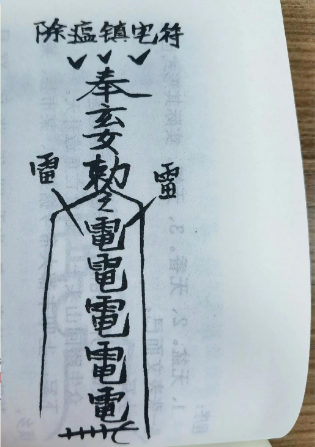 除瘟镇宅符
奉玄女勅令電電電電電
雷
雷